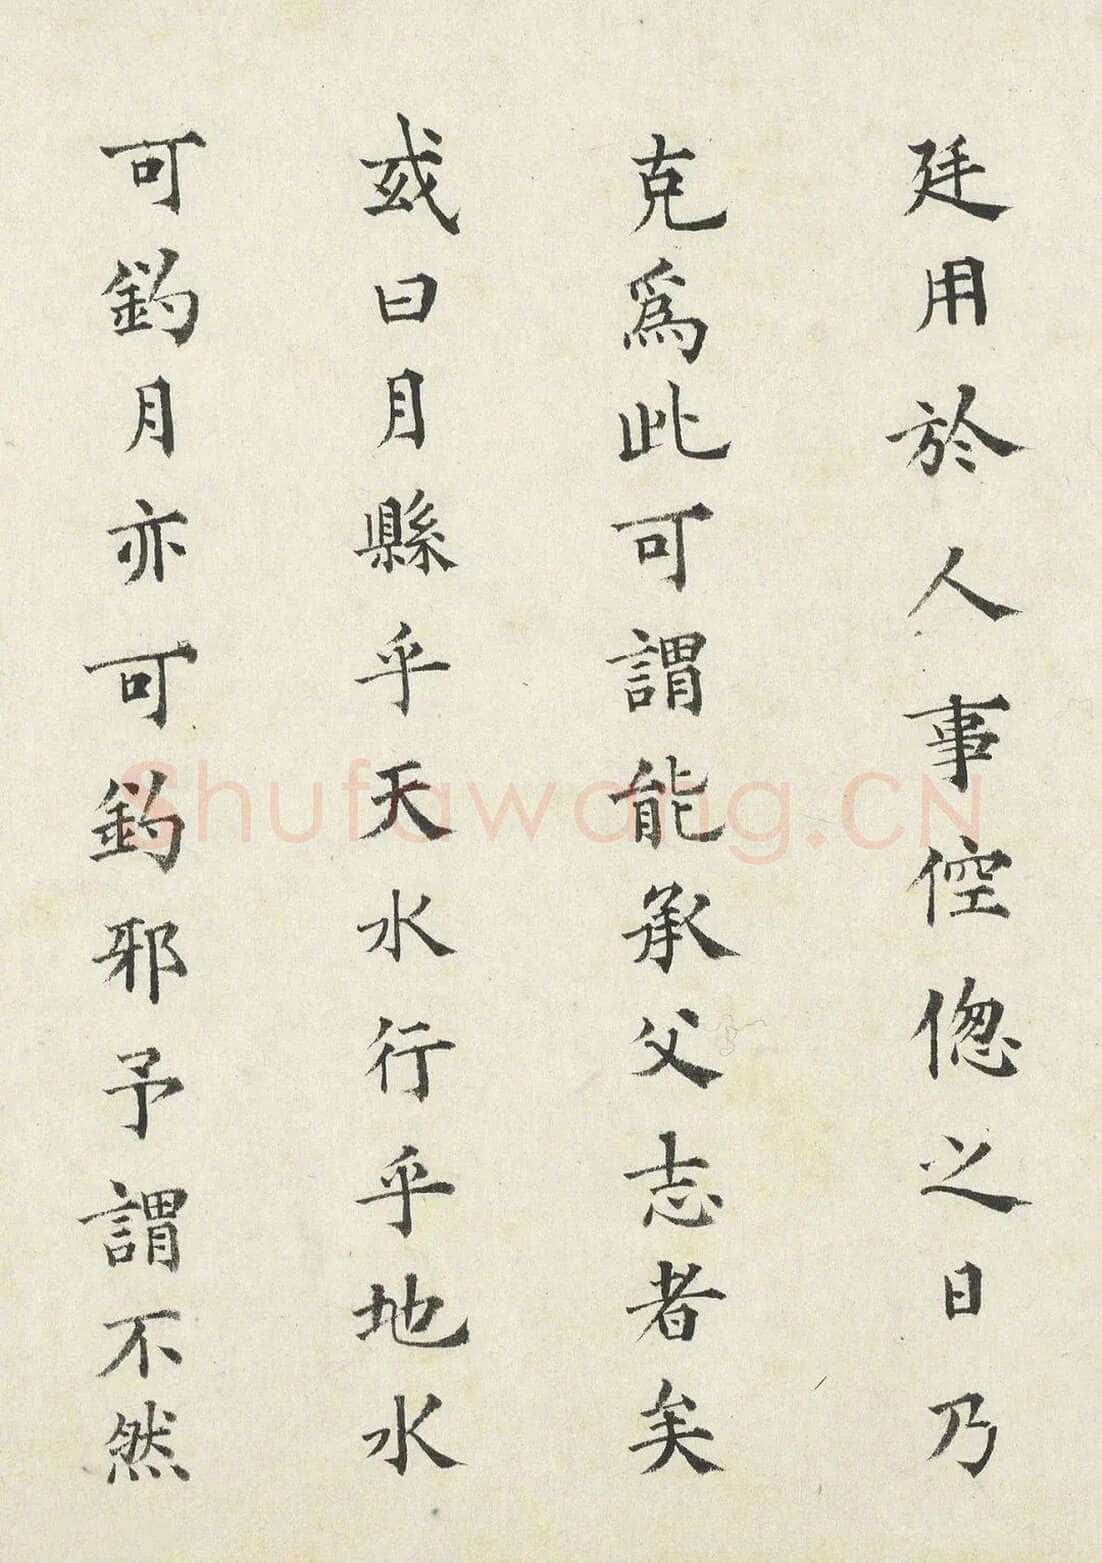 廷用於人事倥傯之日乃
克爲此可謂能承父志者矣
或曰月縣乎天水行乎地水
可釣月亦可釣邪予謂不然
Shufawang.CN